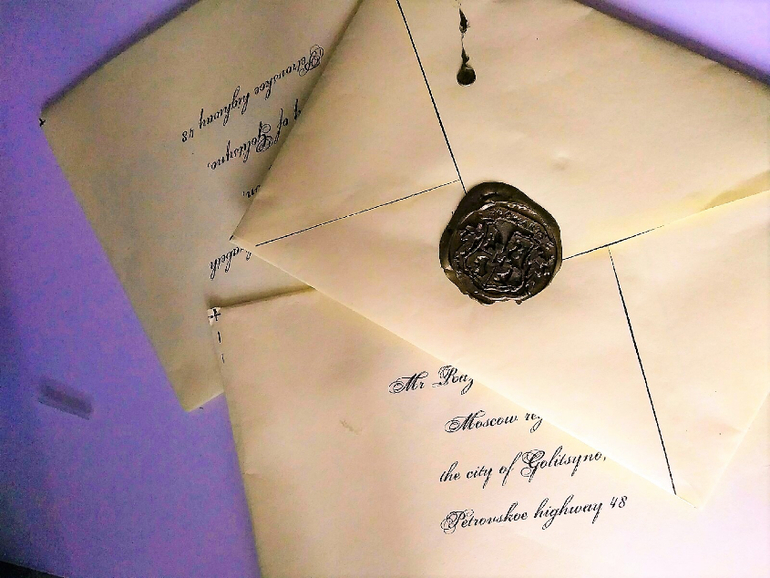 Petrovskoe highway 48
of Golitsyno,
Mr
Moscow
the city of Golitsyno,
Petrovskoe highway 48